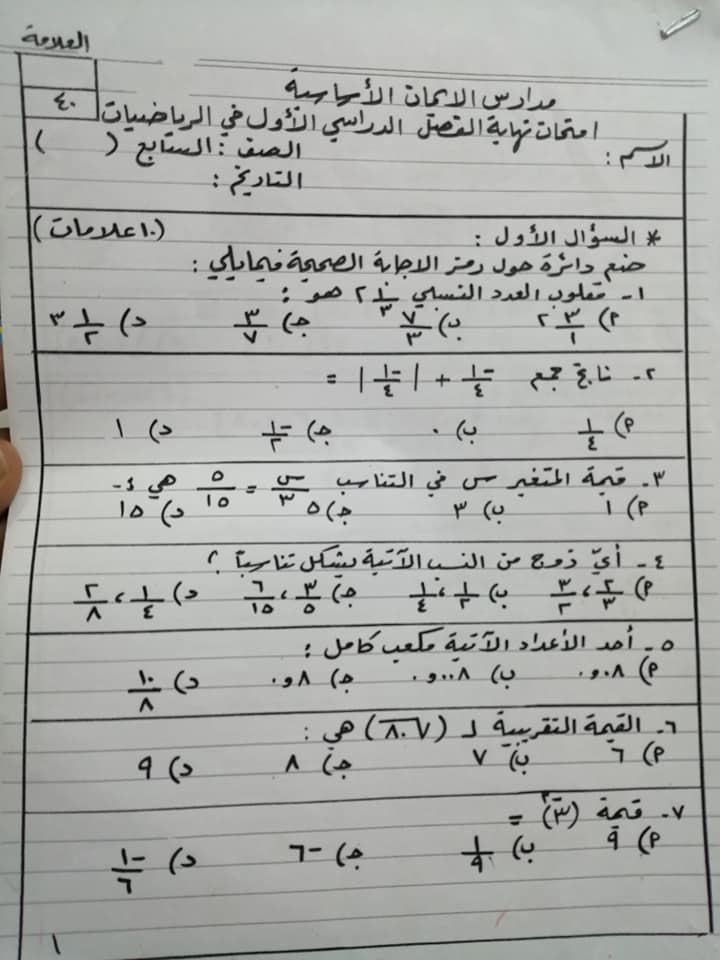 العلامة
٤٠
مدارس الايمان الأساسية
امتحان نهاية الفصل الدراسي الأول في الرياضيات
الاسم : الصف : السابع ( )
التاريخ :
* السؤال الأول : (١٠ علامات)
ضع دائرة حول رمز الاجابة الصحيحة فيما يلي :
١- مقلوب العدد النسبي ٢ ١/٣ هو :
أ) ٢ ٣/١ ب) ٧/٣ ج) ٣/٧ د) ٣ ١/٢
٢- ناتج جمع -١/٤ + |-١/٤| =
أ) ١/٤ ب) ٠ ج) -١/٢ د) ١
٣- قيمة المتغير س في التناسب س/٣ = ٥/١٥ هي
أ) ١ ب) ٣ ج) ٥ د) ١٥
٤- أيّ زوج من النسب الآتية يشكل تناسباً ؟
أ) ٢/٣ ، ٣/٢ ب) ١/٢ ، ١/٤ ج) ٣/٥ ، ٦/١٥ د) ١/٤ ، ٢/٨
٥- أحد الأعداد الآتية مكعب كامل :
أ) ٠,٠٨ ب) ٠,٠٠٨ ج) ٠,٨ د) ١٠/٨
٦- القيمة التقريبية لـ (√٨٠,٧) هي :
أ) ٦ ب) ٧ ج) ٨ د) ٩
٧- قيمة (٣)⁻² =
أ) ٩ ب) ١/٩ ج) -٦ د) -١/٦
١